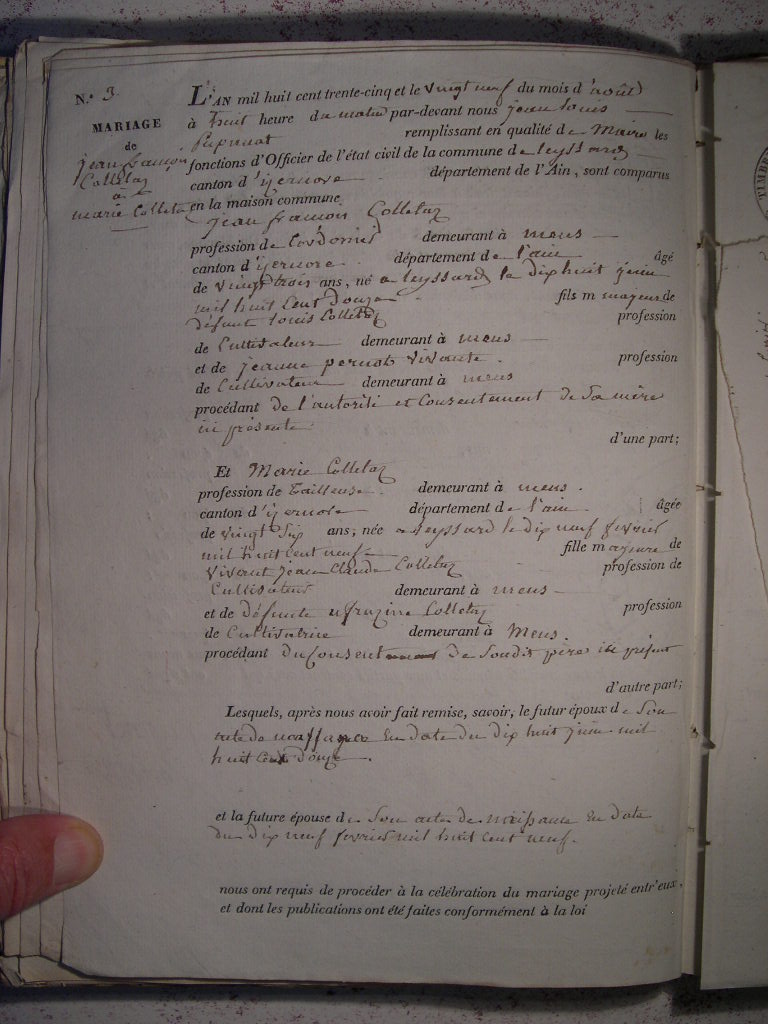 N.° 3.
MARIAGE
de
jean françois
Colletaz
à
marie Colletaz
L'AN mil huit cent trente-cinq et le vingt neuf du mois d'août
à huit heure du matin par-devant nous jean louis
remplissant en qualité de Maire les
fonctions d'Officier de l'état civil de la commune de leyssard
canton d'izernore département de l'Ain, sont comparus
en la maison commune
jean françois Colletaz
profession de Cordonnié demeurant à mens
canton d'izernore département de l'ain âgé
de vingt trois ans, né a leyssard le dix huit juin
mil huit Cent Douze fils majeur de
défunt louis Colletaz profession
de Cultivateur demeurant à mens
et de jeanne pernot vivante profession
de Cultivateur demeurant à mens
procédant de l'autorité et Consentement de Sa mère
ici présente d'une part;
Et Marie Colletaz
profession de Tailleuse demeurant à mens
canton d'izernore département de l'ain âgée
de vingt Six ans, née a leyssard le dix neuf fevrier
mil huit cent neuf fille majeure de
vivant jean Claude Colletaz profession de
Cultivateur demeurant à mens
et de défunte Colletaz profession
de Cultivatrice demeurant à Mens.
procédant du Consent de Soudit père ici présent
d'autre part;
Lesquels, après nous avoir fait remise, savoir, le futur époux de Son
acte de naissance En date du dix huit juin mil
huit Cent douze.
et la future épouse de Son acte de naissance En date
du Dix neuf fevrier mil huit Cent neuf.
nous ont requis de procéder à la célébration du mariage projeté entr'eux,
et dont les publications ont été faites conformément à la loi
TIMBRE